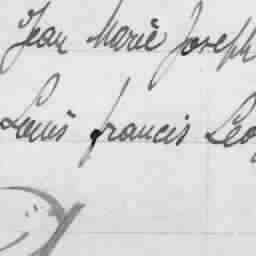 Jean Marie Joseph
Louis francis Leo